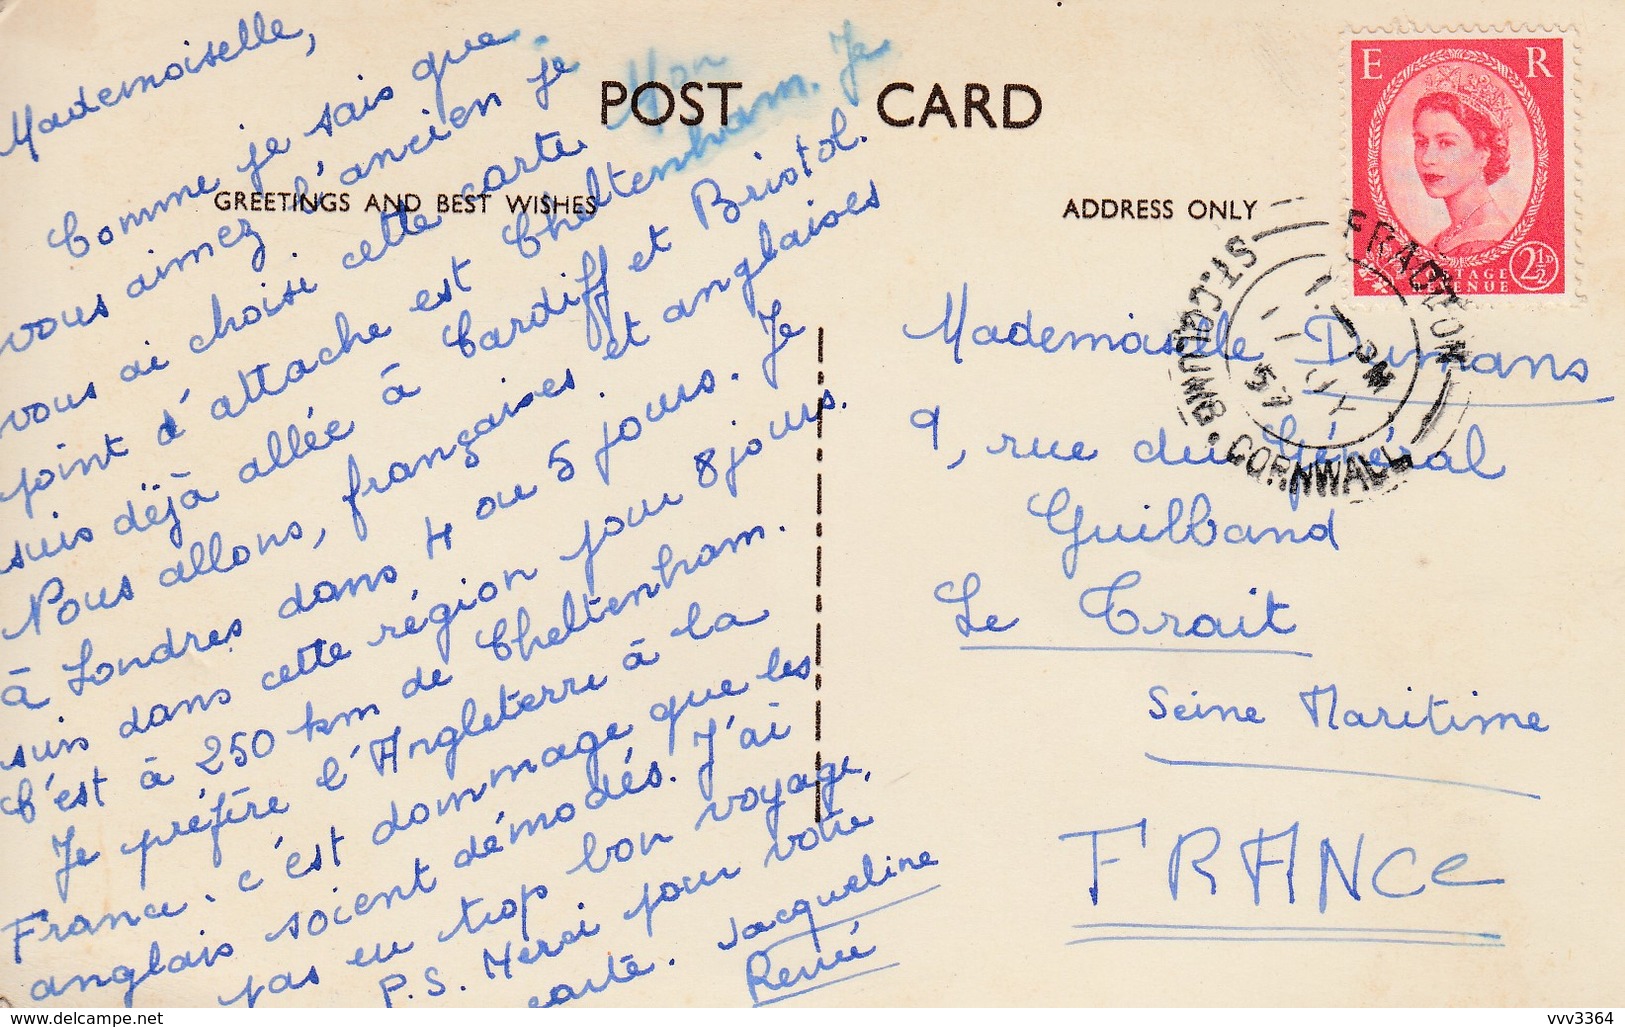 POST CARD
GREETINGS AND BEST WISHES
ADDRESS ONLY
Mademoiselle,
Comme je sais que
vous aimez l'ancien je
vous ai choisi cette carte. Mon
point d'attache est Cheltenham. Je
suis dëjà allée à Cardiff et Bristol.
Nous allons, françaises et anglaises
à Londres dans 4 ou 5 jours. Je
suis dans cette région pour 8 jours.
C'est à 250 km de Cheltenham.
Je préfère l'Angleterre à la
France. c'est dommage que les
anglais soient démodés. J'ai
pas eu trop bon voyage.
P.S. Merci pour votre
carte. Jacqueline
Renié
E R
POSTAGE
REVENUE
2½D
ST. COLUMB
1 - PM
57
CORNWALL
Mademoiselle Dumans
9, rue du Général
Guilband
Le Trait
Seine Maritime
FRANCe
www.delcampe.net
vvv3364